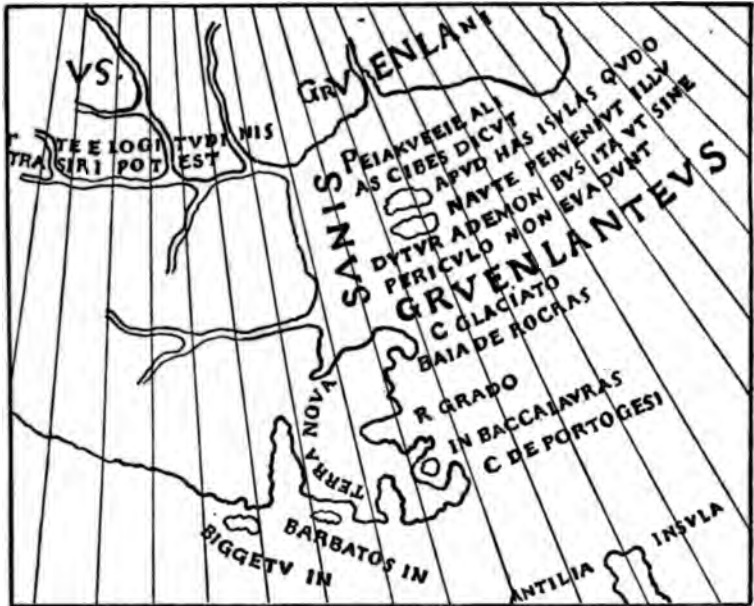 VS.
GRVENLANI
TEE LOGI TVDI NIS
TRA SIRI POT EST
PEIAKVEEIE ALI
AS CIBES DICVT
APVD HAS ISVLAS QVDO
NAVTE PERVENEVT ILLV
DVTVR ADEMON BVS ITA VT SINE
PERICVLO NON EVADVNT
SINVS
GRVENLANTEVS
C GLACIATO
BAIA DE ROCRAS
R GRADO
IN BACCALAVRAS
C DE PORTOGESI
TERRA NOVA
BIGGETV IN
BARBATOS IN
ANTILIA INSVLA